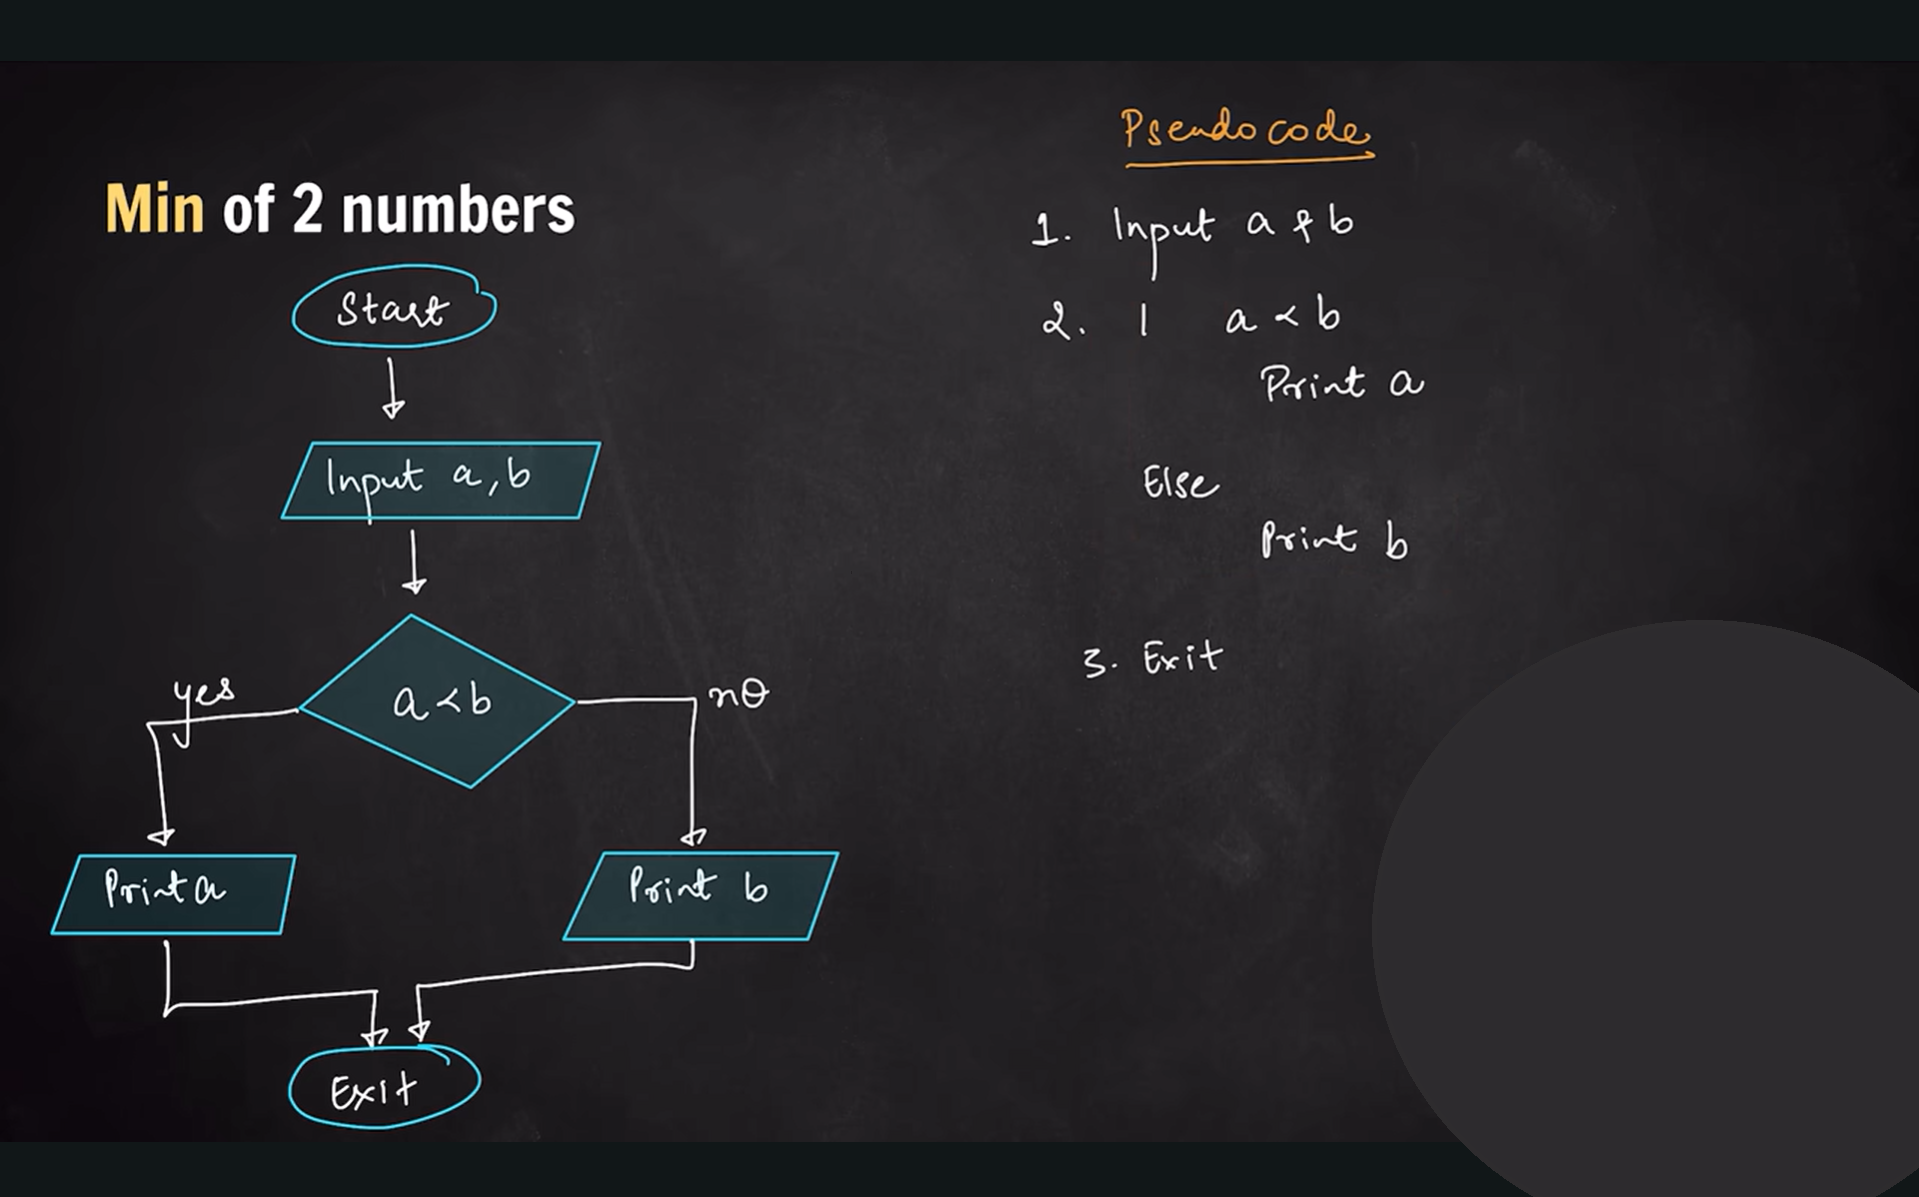 Min of 2 numbers
Start
Input a, b
a < b
yes
no
Print a
Print b
Exit
Pseudocode
1. Input a & b
2. I a < b
Print a
Else
Print b
3. Exit